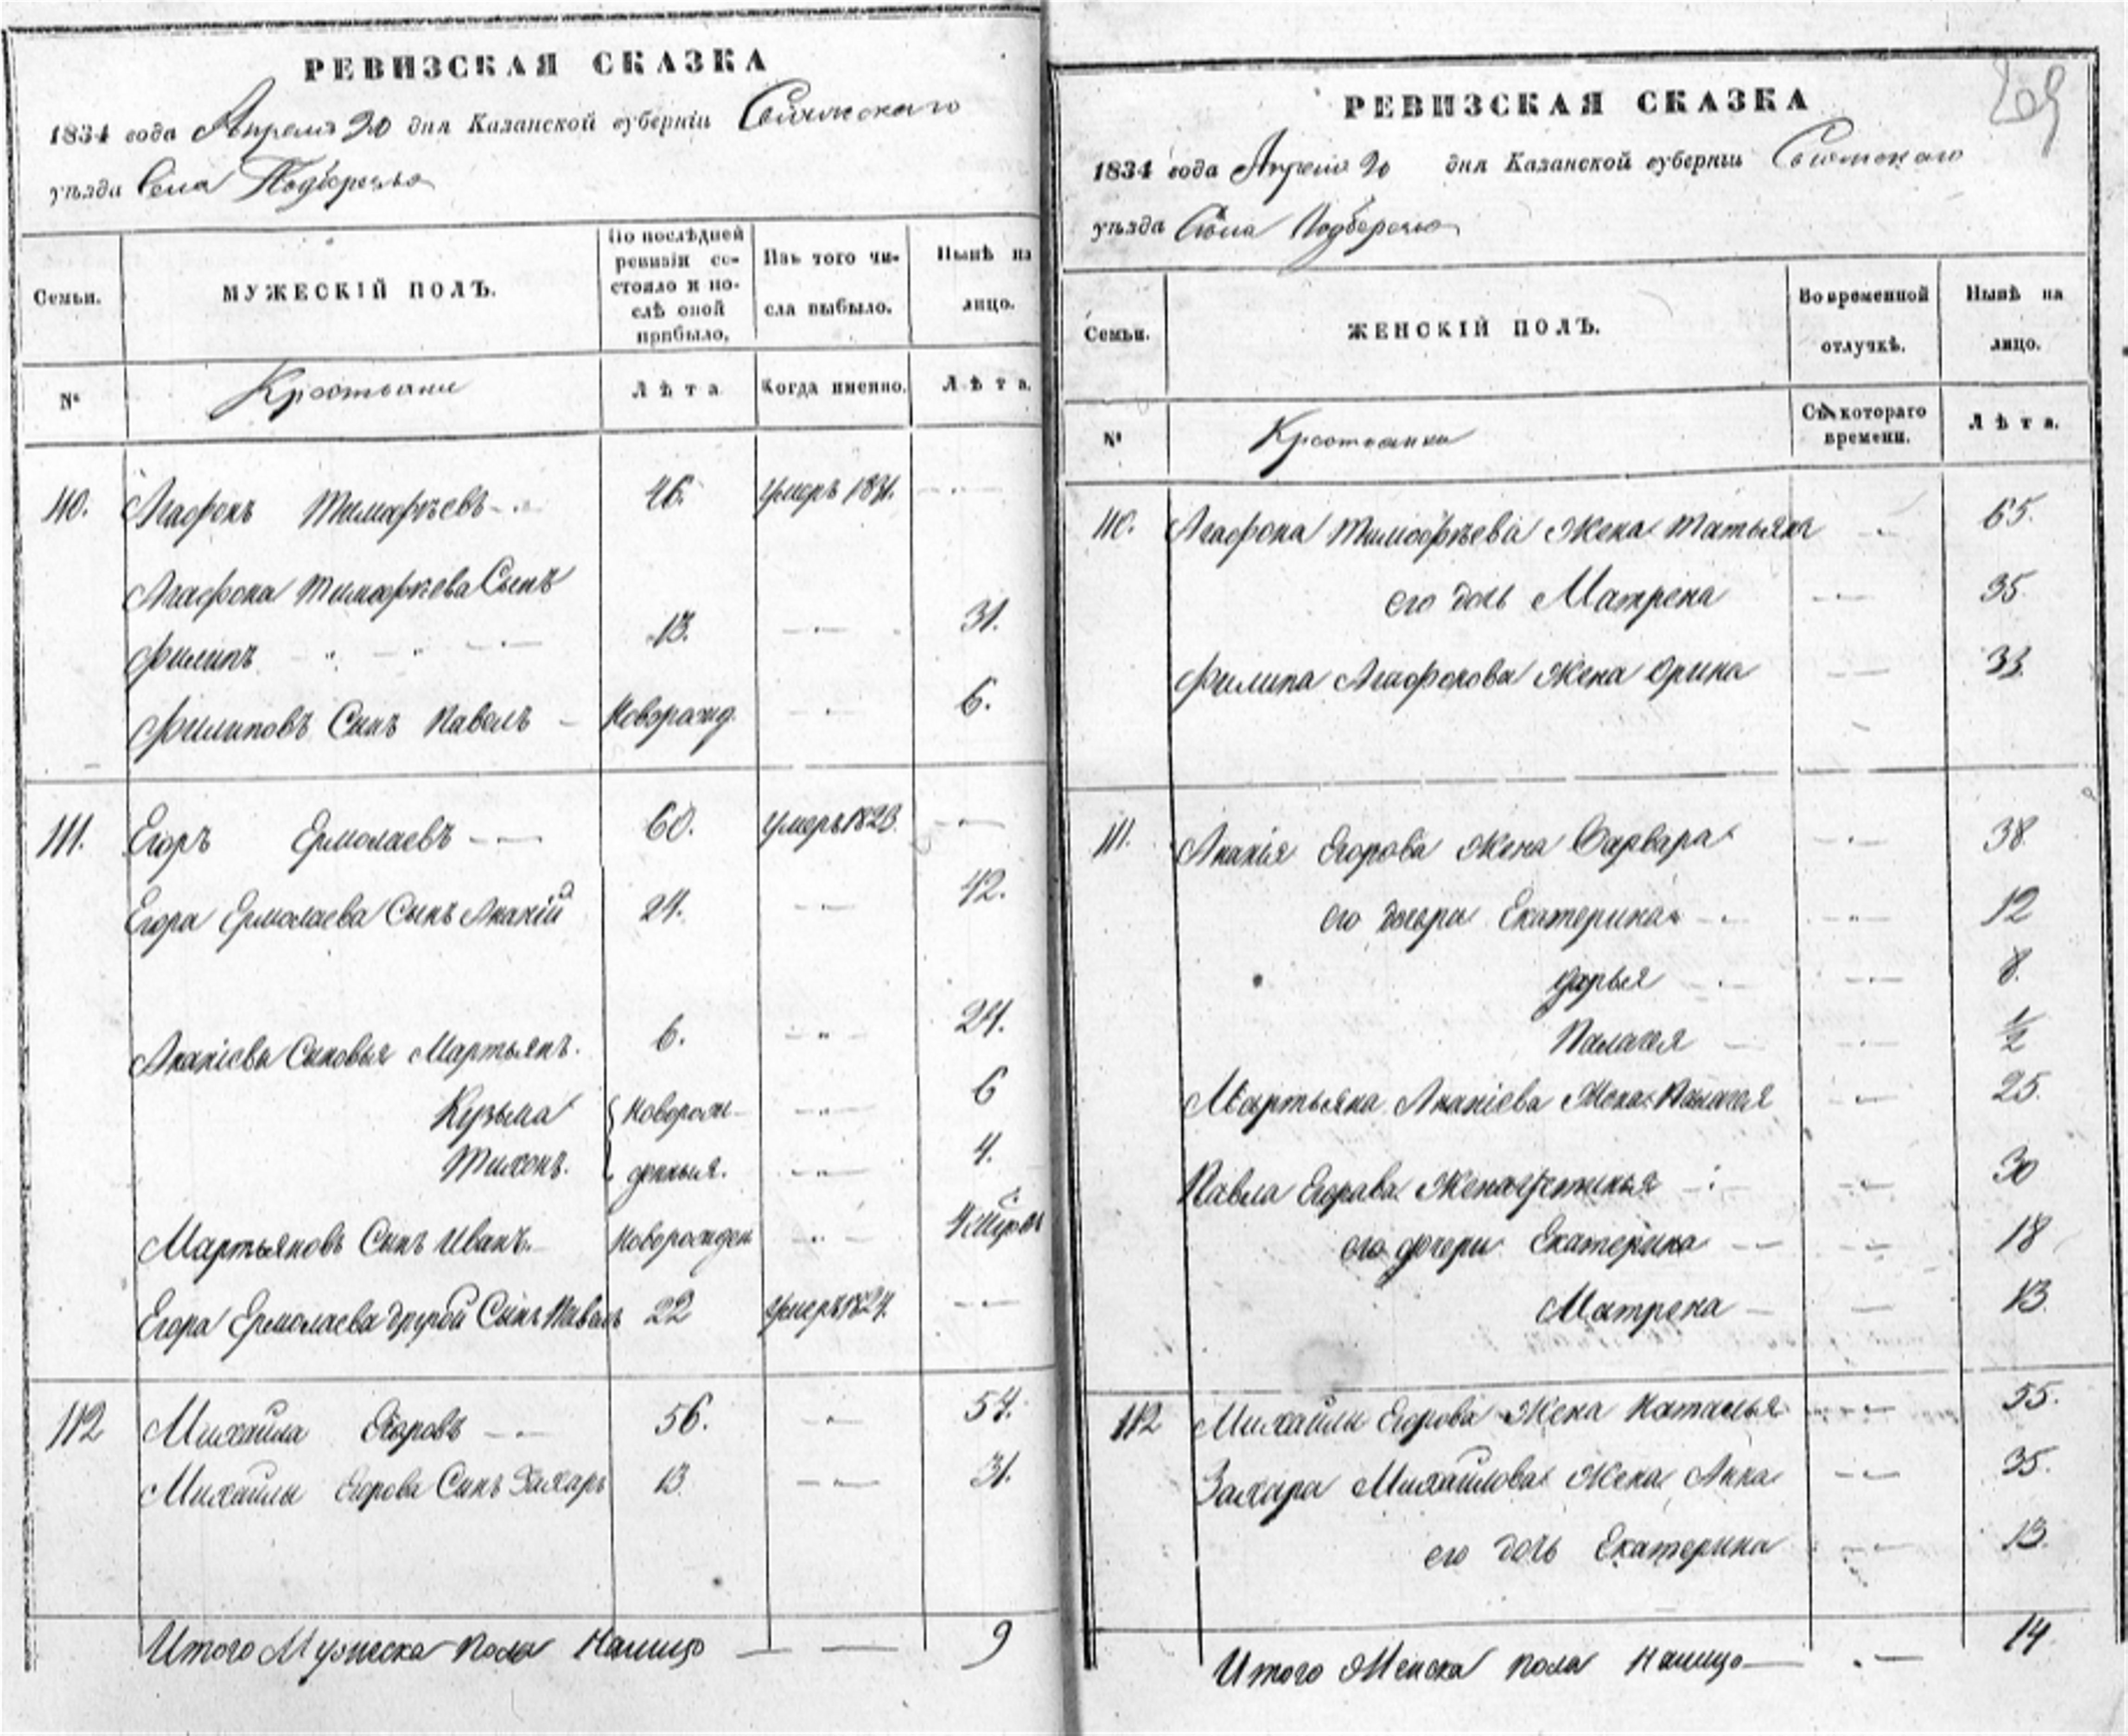 РЕВИЗСКАЯ СКАЗКА
1834 года Апреля 20 дня Казанской губерніи Свіяжскаго
уѣзда Села Подберезья
Семьи.
МУЖЕСКІЙ ПОЛЪ.
По послѣдней ревизіи состояло и послѣ оной прибыло,
Изъ того числа выбыло.
Нынѣ на лицо.
№
Крестьяне
Лѣта
Когда именно.
Лѣта.
110. Агафонъ Тимофѣевъ 46. умеръ 1831.
Агафона Тимофѣева Сынъ
Филипъ 13. 31.
Филиповъ Сынъ Павелъ Новорожд. 6.
111. Егоръ Ермолаевъ 60. умеръ 1823.
Егора Ермолаева Сынъ Ананій 24. 42.
Ананіевы Сыновья Мартьянъ. 6. 24.
Кузьма Новорож- 6
Тихонъ. денныя. 4.
Мартьяновъ Сынъ Иванъ. Новорожден
Егора Ермолаева другой Сынъ Павелъ 22 умеръ 1824.
112 Михайла Егоровъ 56. 54.
Михайлы Егорова Сынъ Захаръ 13. 31.
Итого Мужеска пола Налицо 9
РЕВИЗСКАЯ СКАЗКА
1834 года Апреля 20 дня Казанской губерніи Свіяжскаго
уѣзда Села Подберезья
Семьи.
ЖЕНСКІЙ ПОЛЪ.
Во временной отлучкѣ.
Нынѣ на лицо.
№
Крестьянки
Съ котораго времени.
Лѣта.
110. Агафона Тимофѣева Жена Татьяна 65.
его дочь Матрена 35.
Филипа Агафонова Жена Орина 33.
111. Ананія Егорова Жена Варвара 38.
его дочери Екатерина 12
Дарья 8.
Палагея ½
Мартьяна Ананіева Жена Палагея 25.
Павла Егорава Жена Устинья 30
его дочери Екатерина 18
Матрена 13.
112 Михайлы Егорова Жена Наталья 55.
Захара Михайлова Жена Анна 35.
его дочь Екатерина 13.
Итого Женска пола Налицо 14